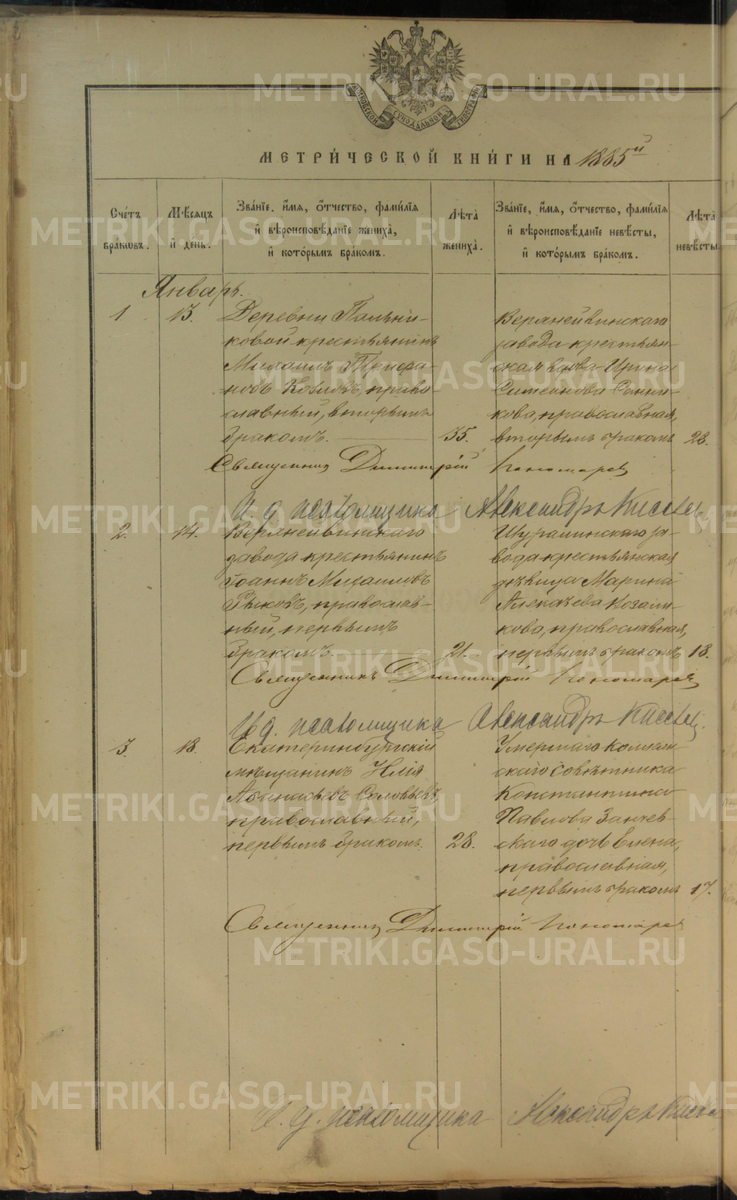 МЕТРИЧЕСКОЙ КНИГИ НА 1885й
Счетъ браковъ.
Мѣсяцъ и день.
Званіе, имя, отчество, фамилія и вѣроисповѣданіе жениха, и которымъ бракомъ.
Лѣта жениха.
Званіе, имя, отчество, фамилія и вѣроисповѣданіе невѣсты, и которымъ бракомъ.
Лѣта невѣсты
Январь.
1
13.
Деревни
ковой крестьянинъ
Михаилъ
новъ право
славный, вторымъ
бракомъ.
35.
Верхнейвинскаго
завода крестьян
ская вдова Ирина
Симеонова Санни
кова, православная,
вторымъ бракомъ
28.
Священникъ Димитрій Пономаревъ
И. д. псаломщика Александръ
2.
14.
Верхнейвинскаго
завода крестьянинъ
Іоаннъ Михаиловъ
православ-
ный, первымъ
бракомъ.
21.
Шуралинскаго за-
вода крестьянская
дѣвица Марина
Алексѣева
кова, православная,
первымъ бракомъ
18.
Священникъ Димитрій Пономаревъ
И. д. псаломщика Александръ
3
18.
Екатеринбургскій
мѣщанинъ Илія
Аѳанасьевъ Соловьевъ,
православный,
первымъ бракомъ.
28.
Умершаго
скаго совѣтника
Константина
Павлова
скаго дочь Елена,
православная,
первымъ бракомъ
17.
Священникъ Димитрій Пономаревъ
И. д. псаломщика Александръ
METRIKI.GASO-URAL.RU